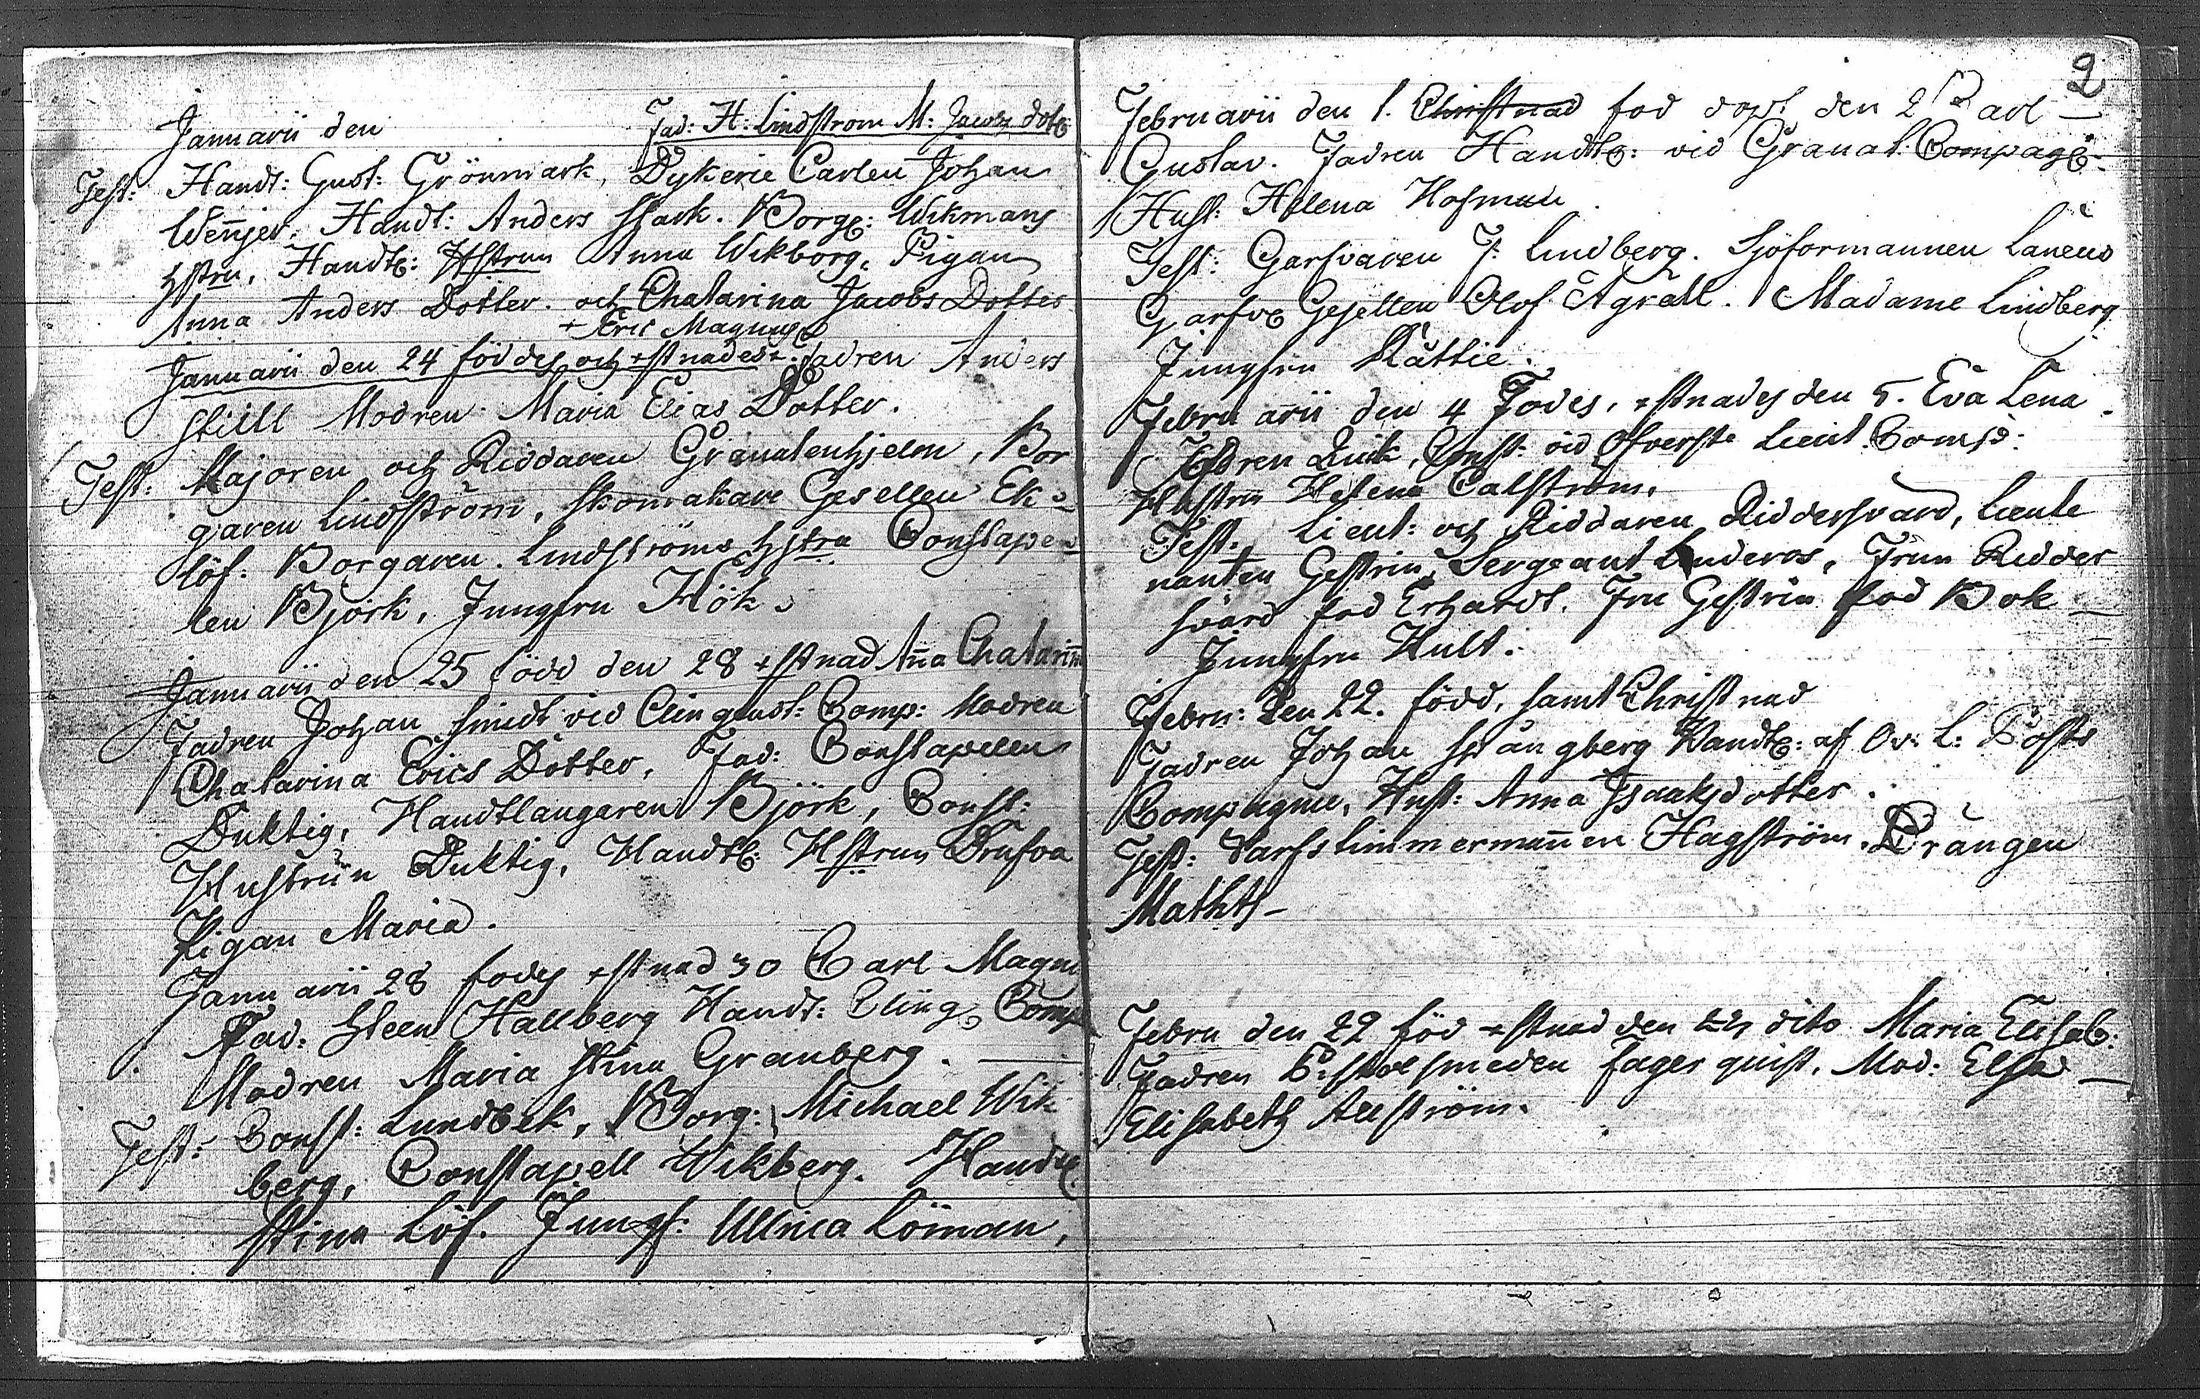 Januarii den Fad: H: Lindstrom M: Jacobs dott:
Test: Handt: Gust: Grönmark, Dykerie Carlen Johan
Wennjer, Handt: Anders Stark. Borg: Wikmans
hstru, Handtl: Hstrun Anna Wikborg, Pigan
Anna Anders Dotter. och Chatarina Jacobs Dotter
+ Eric Magnus
Januarii den 24 föddes och +stnades. Fadren Anders
Still Modren Maria Elias Dotter.
Test: Majoren och Riddaren Granatenhjelm, Bor
garen Lindström, Skomakare Gesellen Ek-
löf. Borgaren Lindströms hstru Constape
len Björk, Jungfru Hök.
Januarii den 25 född den 28 +stnad Anna Chatarina
Fadren Johan Smidt vid Comp: Modren
Chatarina Erics Dotter, Fad: Constapelen
Duktig, Handtlangaren Björk, Const:
Hustrun Duktig, Handtl: Hstrun Drufva
Pigan Maria.
Januarii 28 fodes +stnad 30 Carl Magnus
Fad: Steen Hallberg Handt: Cling Comp
Modren Maria Stina Granberg.
Test: Const: Lundbek, Borg: Michael Wik
berg, Constapell Wikberg. Handtl.
Stina Löf. Jungf: Ulrica Löman,
2
Februarii den 1. Christnad fod dopt den 2 Carl
Gustav. Fadren Handtl: vid Granat: Compag:
Hust: Helena Hofman.
Test: Garfvaren J: Lindberg. Sjöformannen Laneus
Garfve Gesellen Olof Agrall. Madame Lindberg
Jungfru Rättie.
Februarii den 4 Fodes, +stnades den 5. Eva Lena
Fadren Quik, Const: vid Öfverste Lieut. Comp:
Hustru Helena Calström.
Test. Lieut: och Riddaren Riddersvard, Lieute
nanten Gestrin, Sergeant Linderos, Frun Ridder
svärd fod Erhardt. Fru Gestrin fod Bok
Jungfru Hult.
Febru: den 22. född, samt Christnad
Fadren Johan Stångberg Handtl: af Öv: L: Posts
Compagnie, Hust: Anna Isaaksdotter.
Test: Varfstimmermannen Hagström. Drängen
Mathts
Febru den 22 föd +stnad den dito Maria Elisab:
Fadren smeden Fagerquist. Mod: Elsa
Elisabeth Allström.